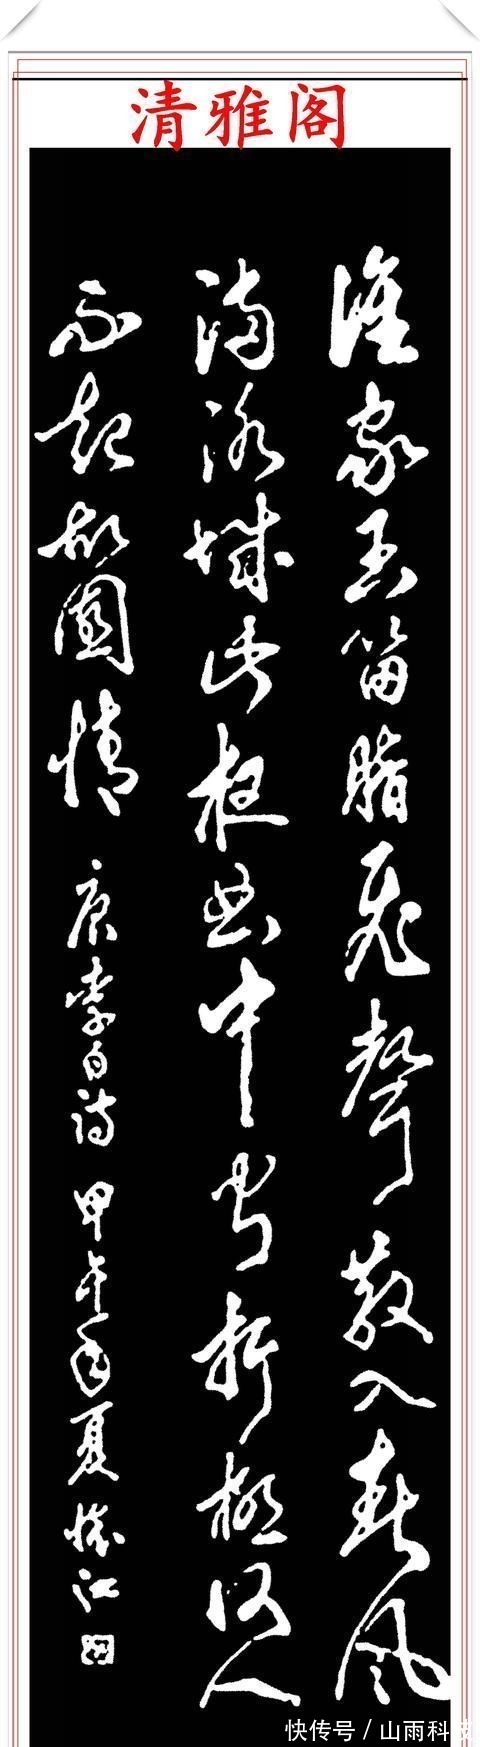 清雅阁
谁家玉笛暗飞声散入春风
满洛城此夜曲中闻折柳何人
不起故园情
唐李白诗 甲午年夏 江
快传号 / 山雨科技